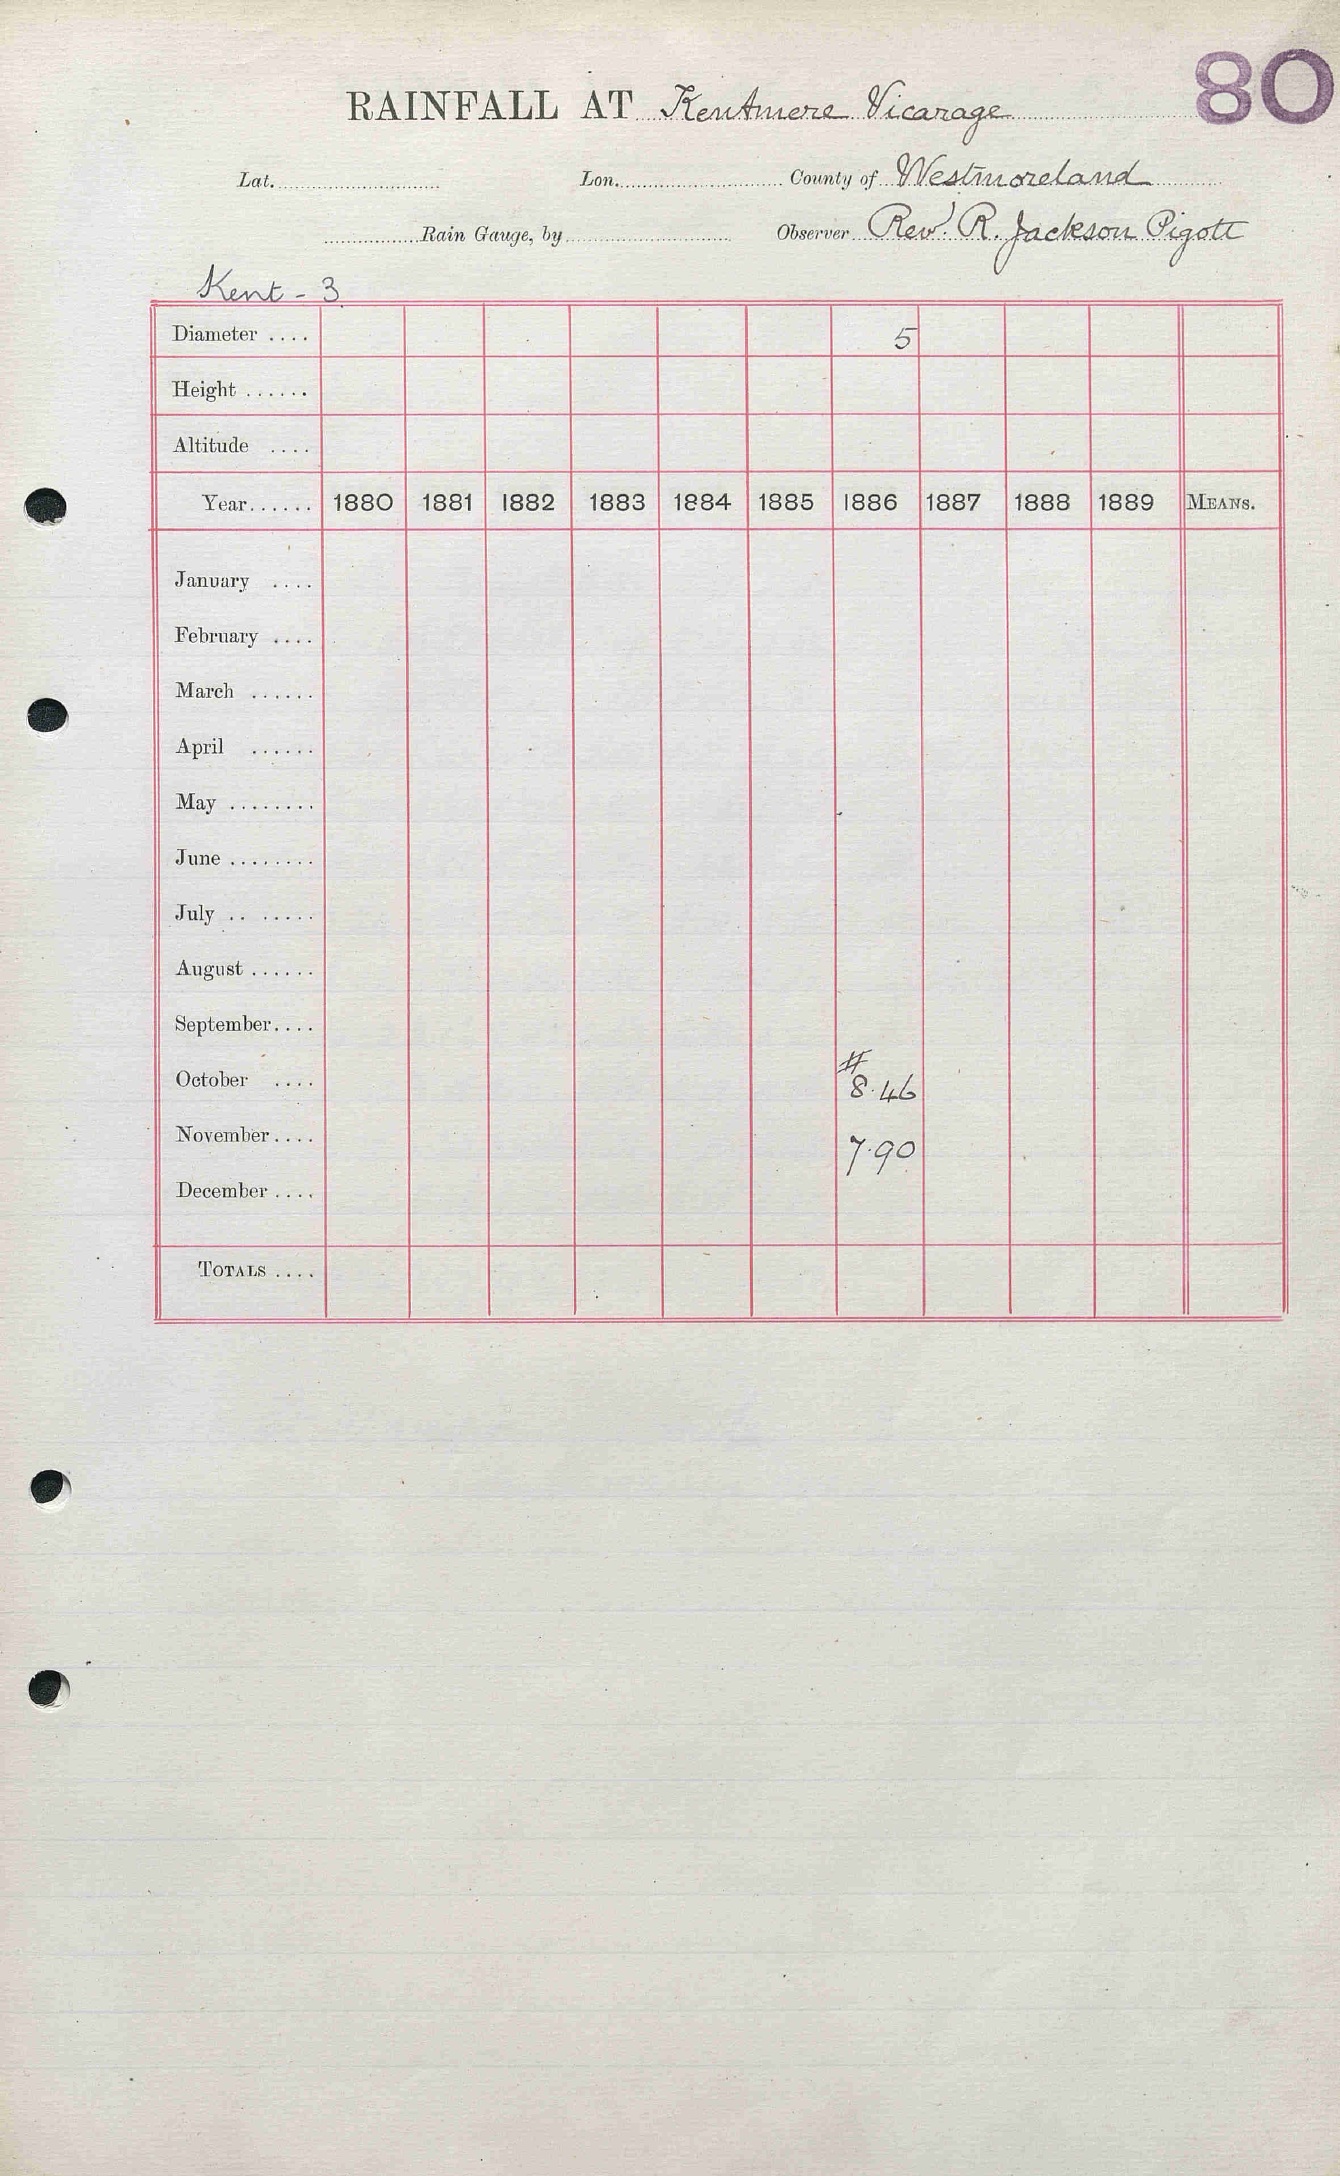 80
RAINFALL AT Kentmere Vicarage
Lat. Lon. County of Westmoreland
Rain Gauge, by Observer Rev. R. Jackson Pigott
Kent - 3
Diameter .... 5
Height ......
Altitude ....
Year...... 1880 1881 1882 1883 1884 1885 1886 1887 1888 1889 MEANS.
January ....
February ....
March ......
April ......
May ........
June ........
July .. .....
August ......
September....
#
October .... 8.46
November.... 7.90
December ....
TOTALS ....